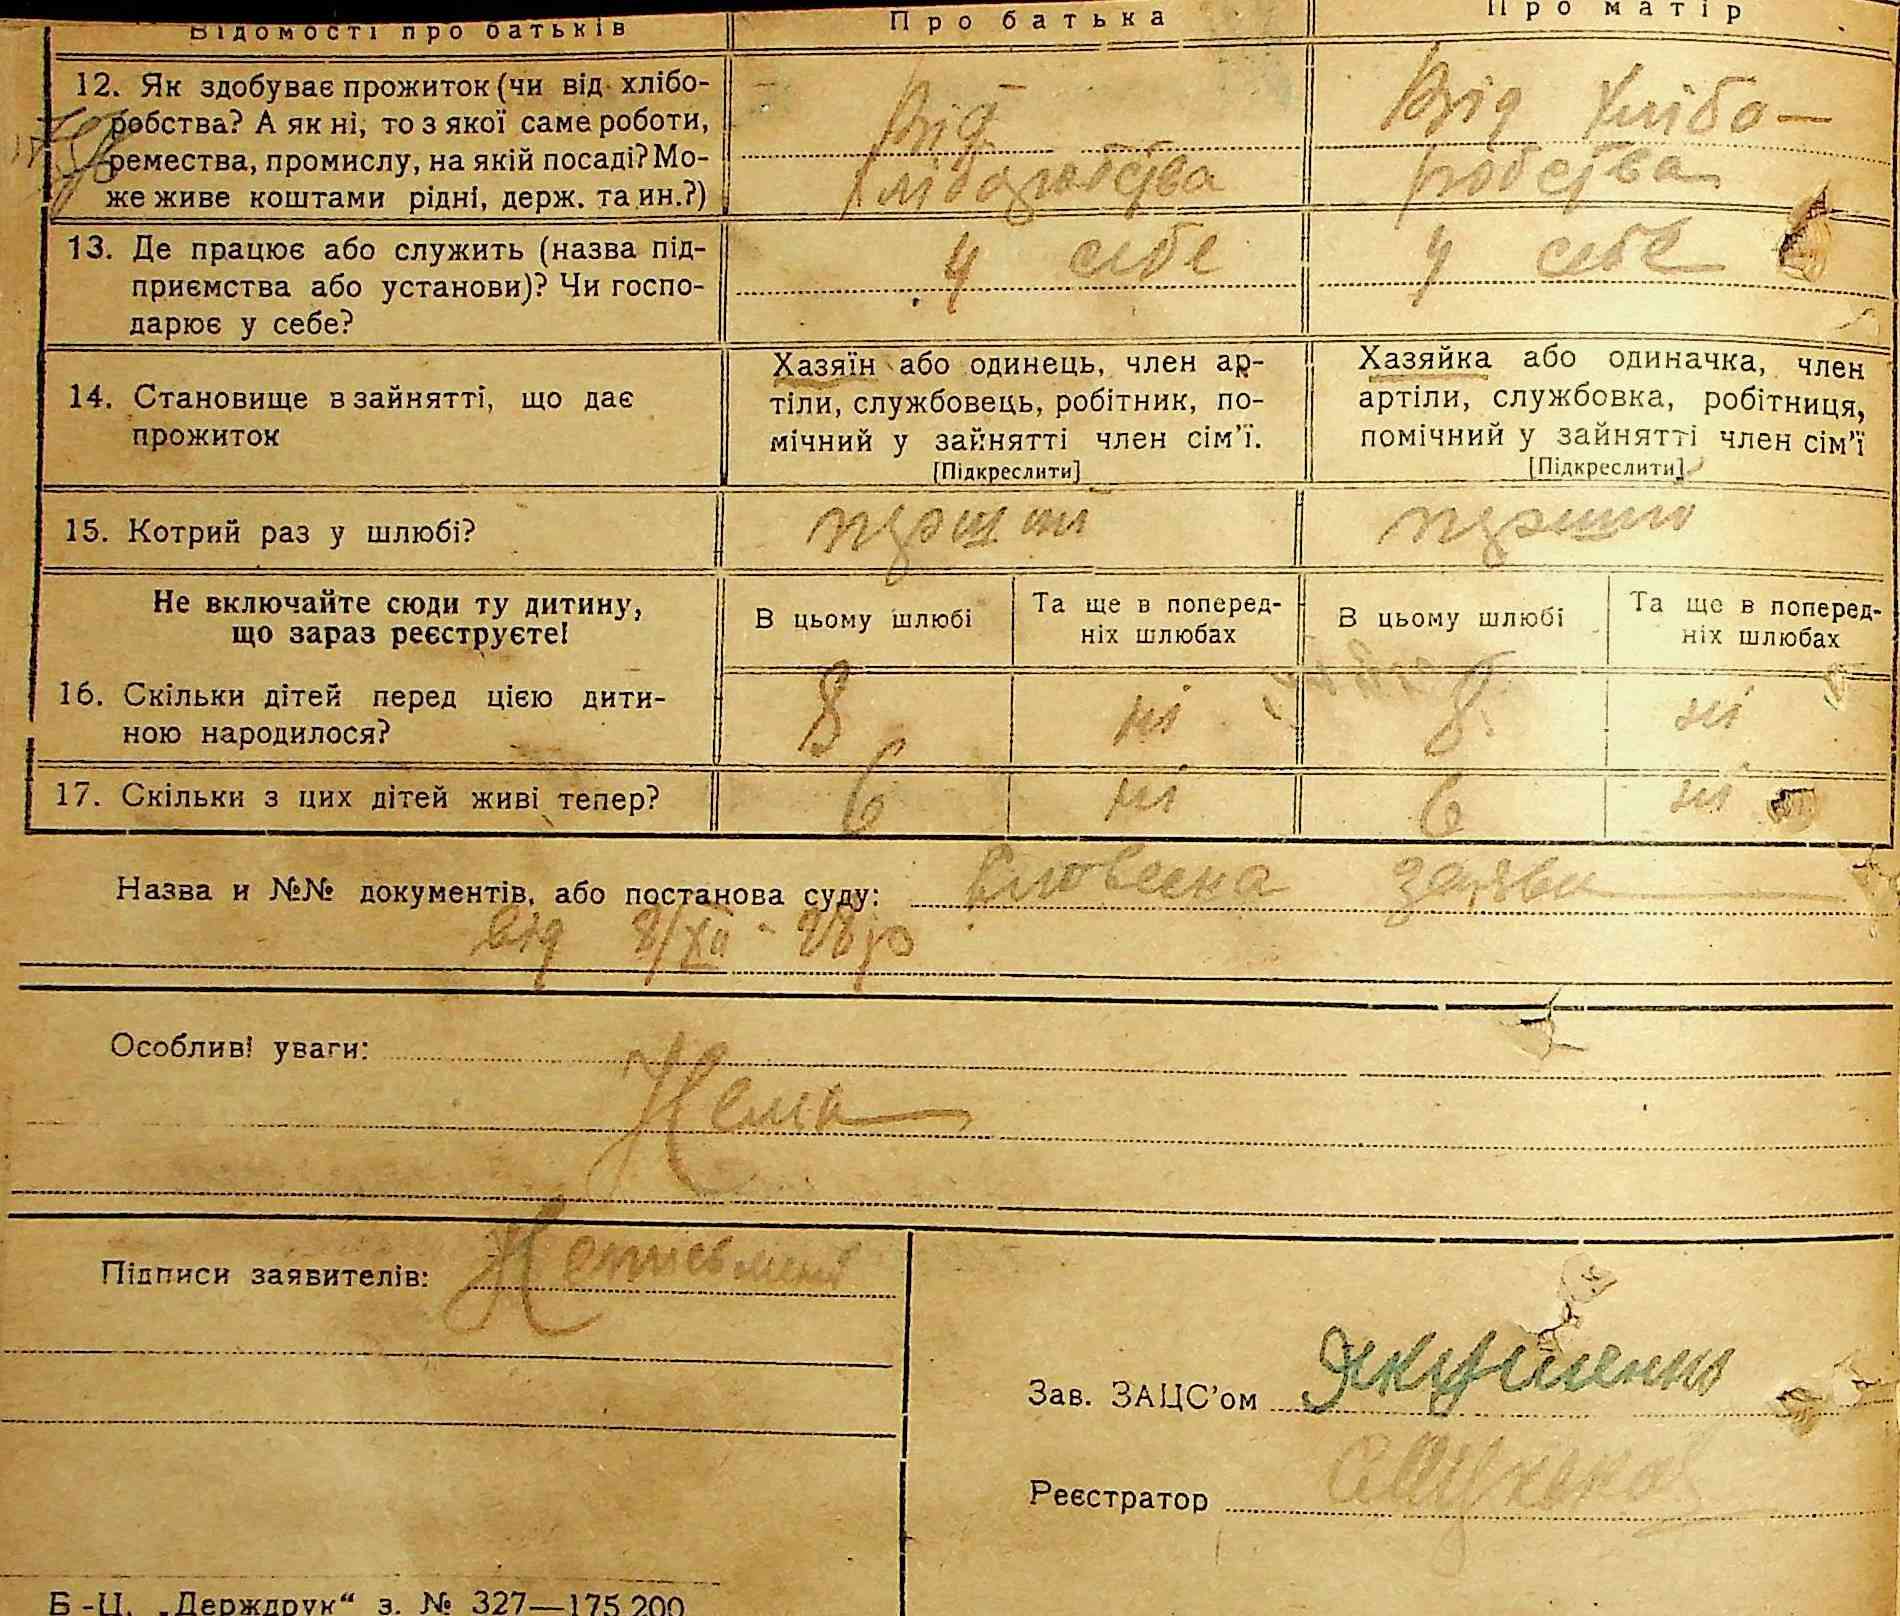 Відомості про батьків
Про батька
Про матір
12. Як здобуває прожиток (чи від хлібо-
робства? А як ні, то з якої саме роботи,
ремества, промислу, на якій посаді? Мо-
же живе коштами рідні, держ. та ин.?)
Від
хліборобства
Від хлібо-
робства
13. Де працює або служить (назва під-
приємства або установи)? Чи госпо-
дарює у себе?
У себе
У себе
14. Становище в зайнятті, що дає
прожиток
Хазяїн або одинець, член ар-
тіли, службовець, робітник, по-
мічний у зайнятті член сім'ї.
[Підкреслити]
Хазяйка або одиначка, член
артіли, службовка, робітниця,
помічний у зайнятті член сім'ї
[Підкреслити]
15. Котрий раз у шлюбі?
Не включайте сюди ту дитину,
що зараз реєструєте!
В цьому шлюбі
Та ще в поперед-
ніх шлюбах
В цьому шлюбі
Та ще в поперед-
ніх шлюбах
16. Скільки дітей перед цією дити-
ною народилося?
8
ні
8
ні
17. Скільки з цих дітей живі тепер?
6
ні
6
ні
Назва и №№ документів, або постанова суду: Словесна заява
від 8/XII - 28 р
Особливі уваги:
Нема
Підписи заявителів: Неписьмені
Зав. ЗАЦС'ом Якушенко
Реєстратор
Б-Ц. „Держдрук“ з. № 327—175.200